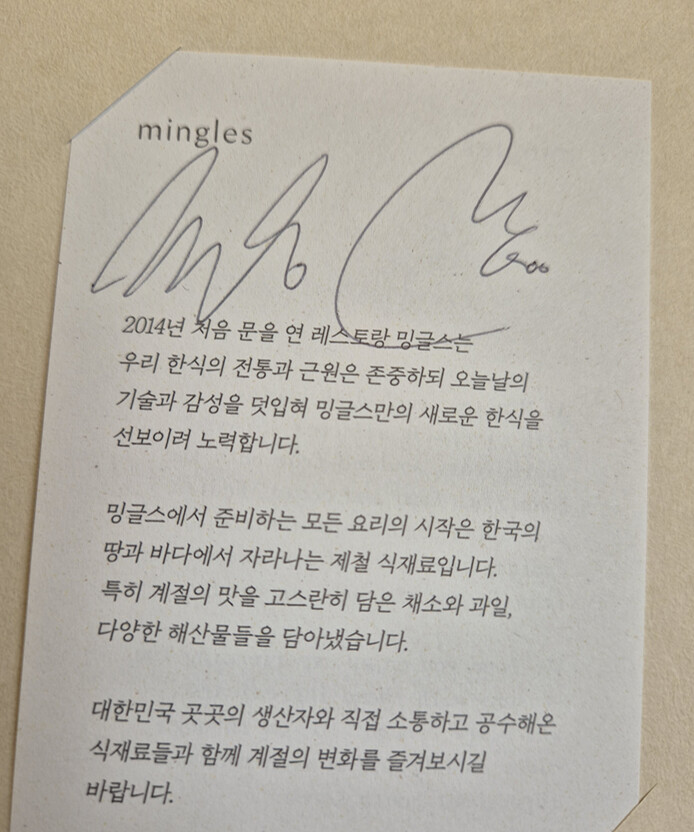 mingles
2014년 처음 문을 연 레스토랑 밍글스는
우리 한식의 전통과 근원은 존중하되 오늘날의
기술과 감성을 덧입혀 밍글스만의 새로운 한식을
선보이려 노력합니다.
밍글스에서 준비하는 모든 요리의 시작은 한국의
땅과 바다에서 자라나는 제철 식재료입니다.
특히 계절의 맛을 고스란히 담은 채소와 과일,
다양한 해산물들을 담아냈습니다.
대한민국 곳곳의 생산자와 직접 소통하고 공수해온
식재료들과 함께 계절의 변화를 즐겨보시길
바랍니다.